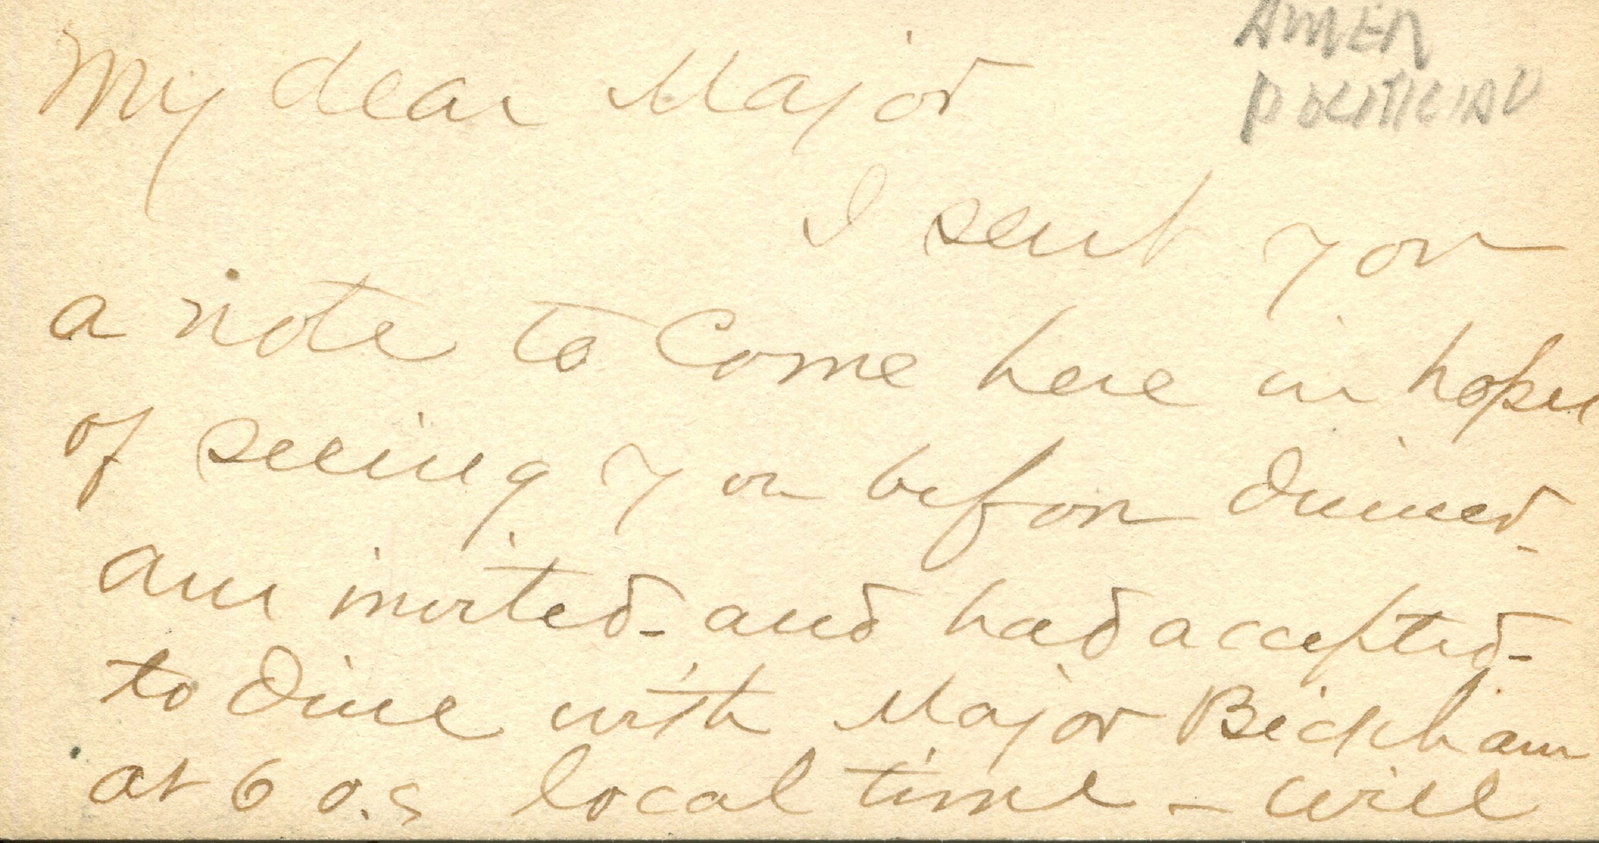 AMER
POLITICIAN
My dear Major
I sent you
a note to Come here in hopes
of seeing you before dinner
am invited - and had accepted -
to dine with Major Bickham
at 6 o.c local time - will